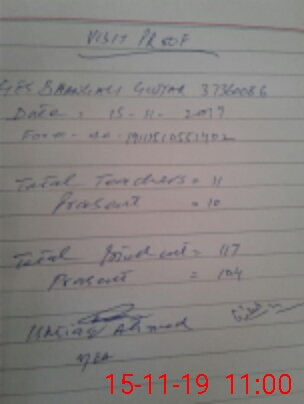 VISIT PROOF
GES BHANGALI GUJAR 37360086
Date: 15-11-2019
Total Teachers = 11
Present = 10
Total Student = 117
Present = 104
Ishtiaq Ahmed
MEA
15-11-19 11:00